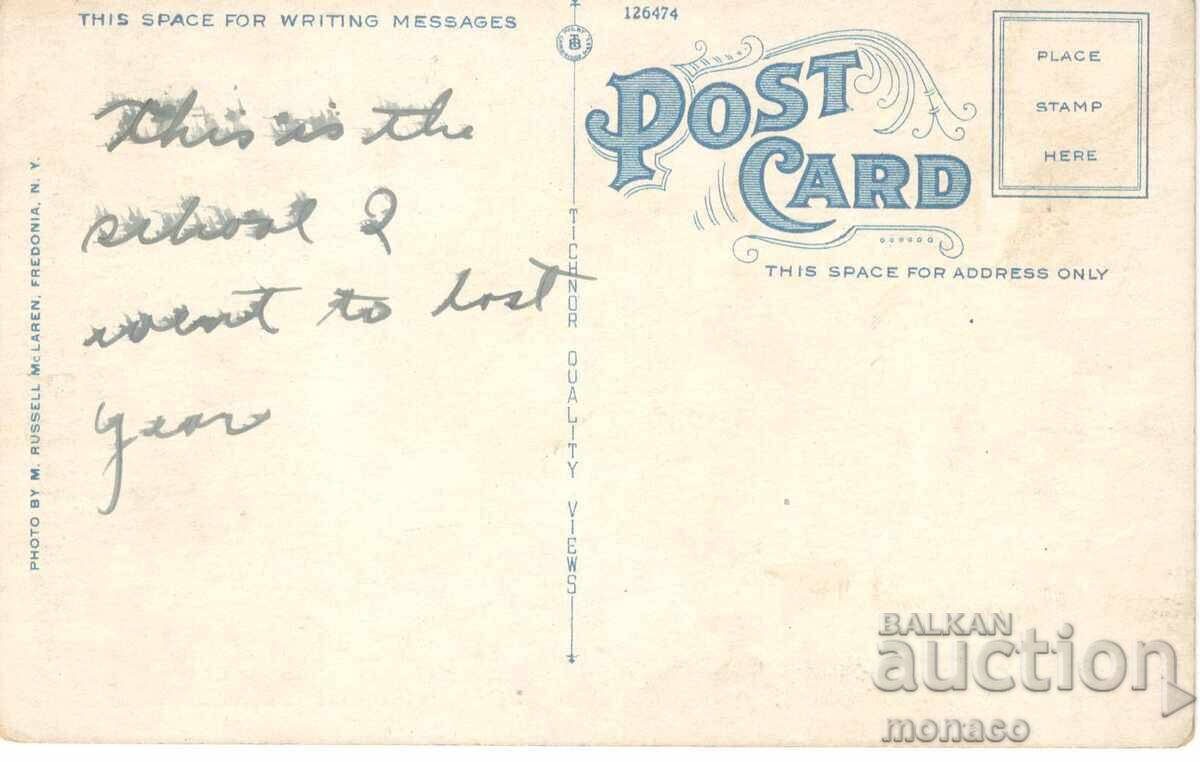 THIS SPACE FOR WRITING MESSAGES
126474
POST
CARD
PLACE
STAMP
HERE
THIS SPACE FOR ADDRESS ONLY
This is the
school I
went to last
year
TICHNOR QUALITY VIEWS
PHOTO BY M. RUSSELL McLAREN, FREDONIA, N. Y.
BALKAN
auction
monaco